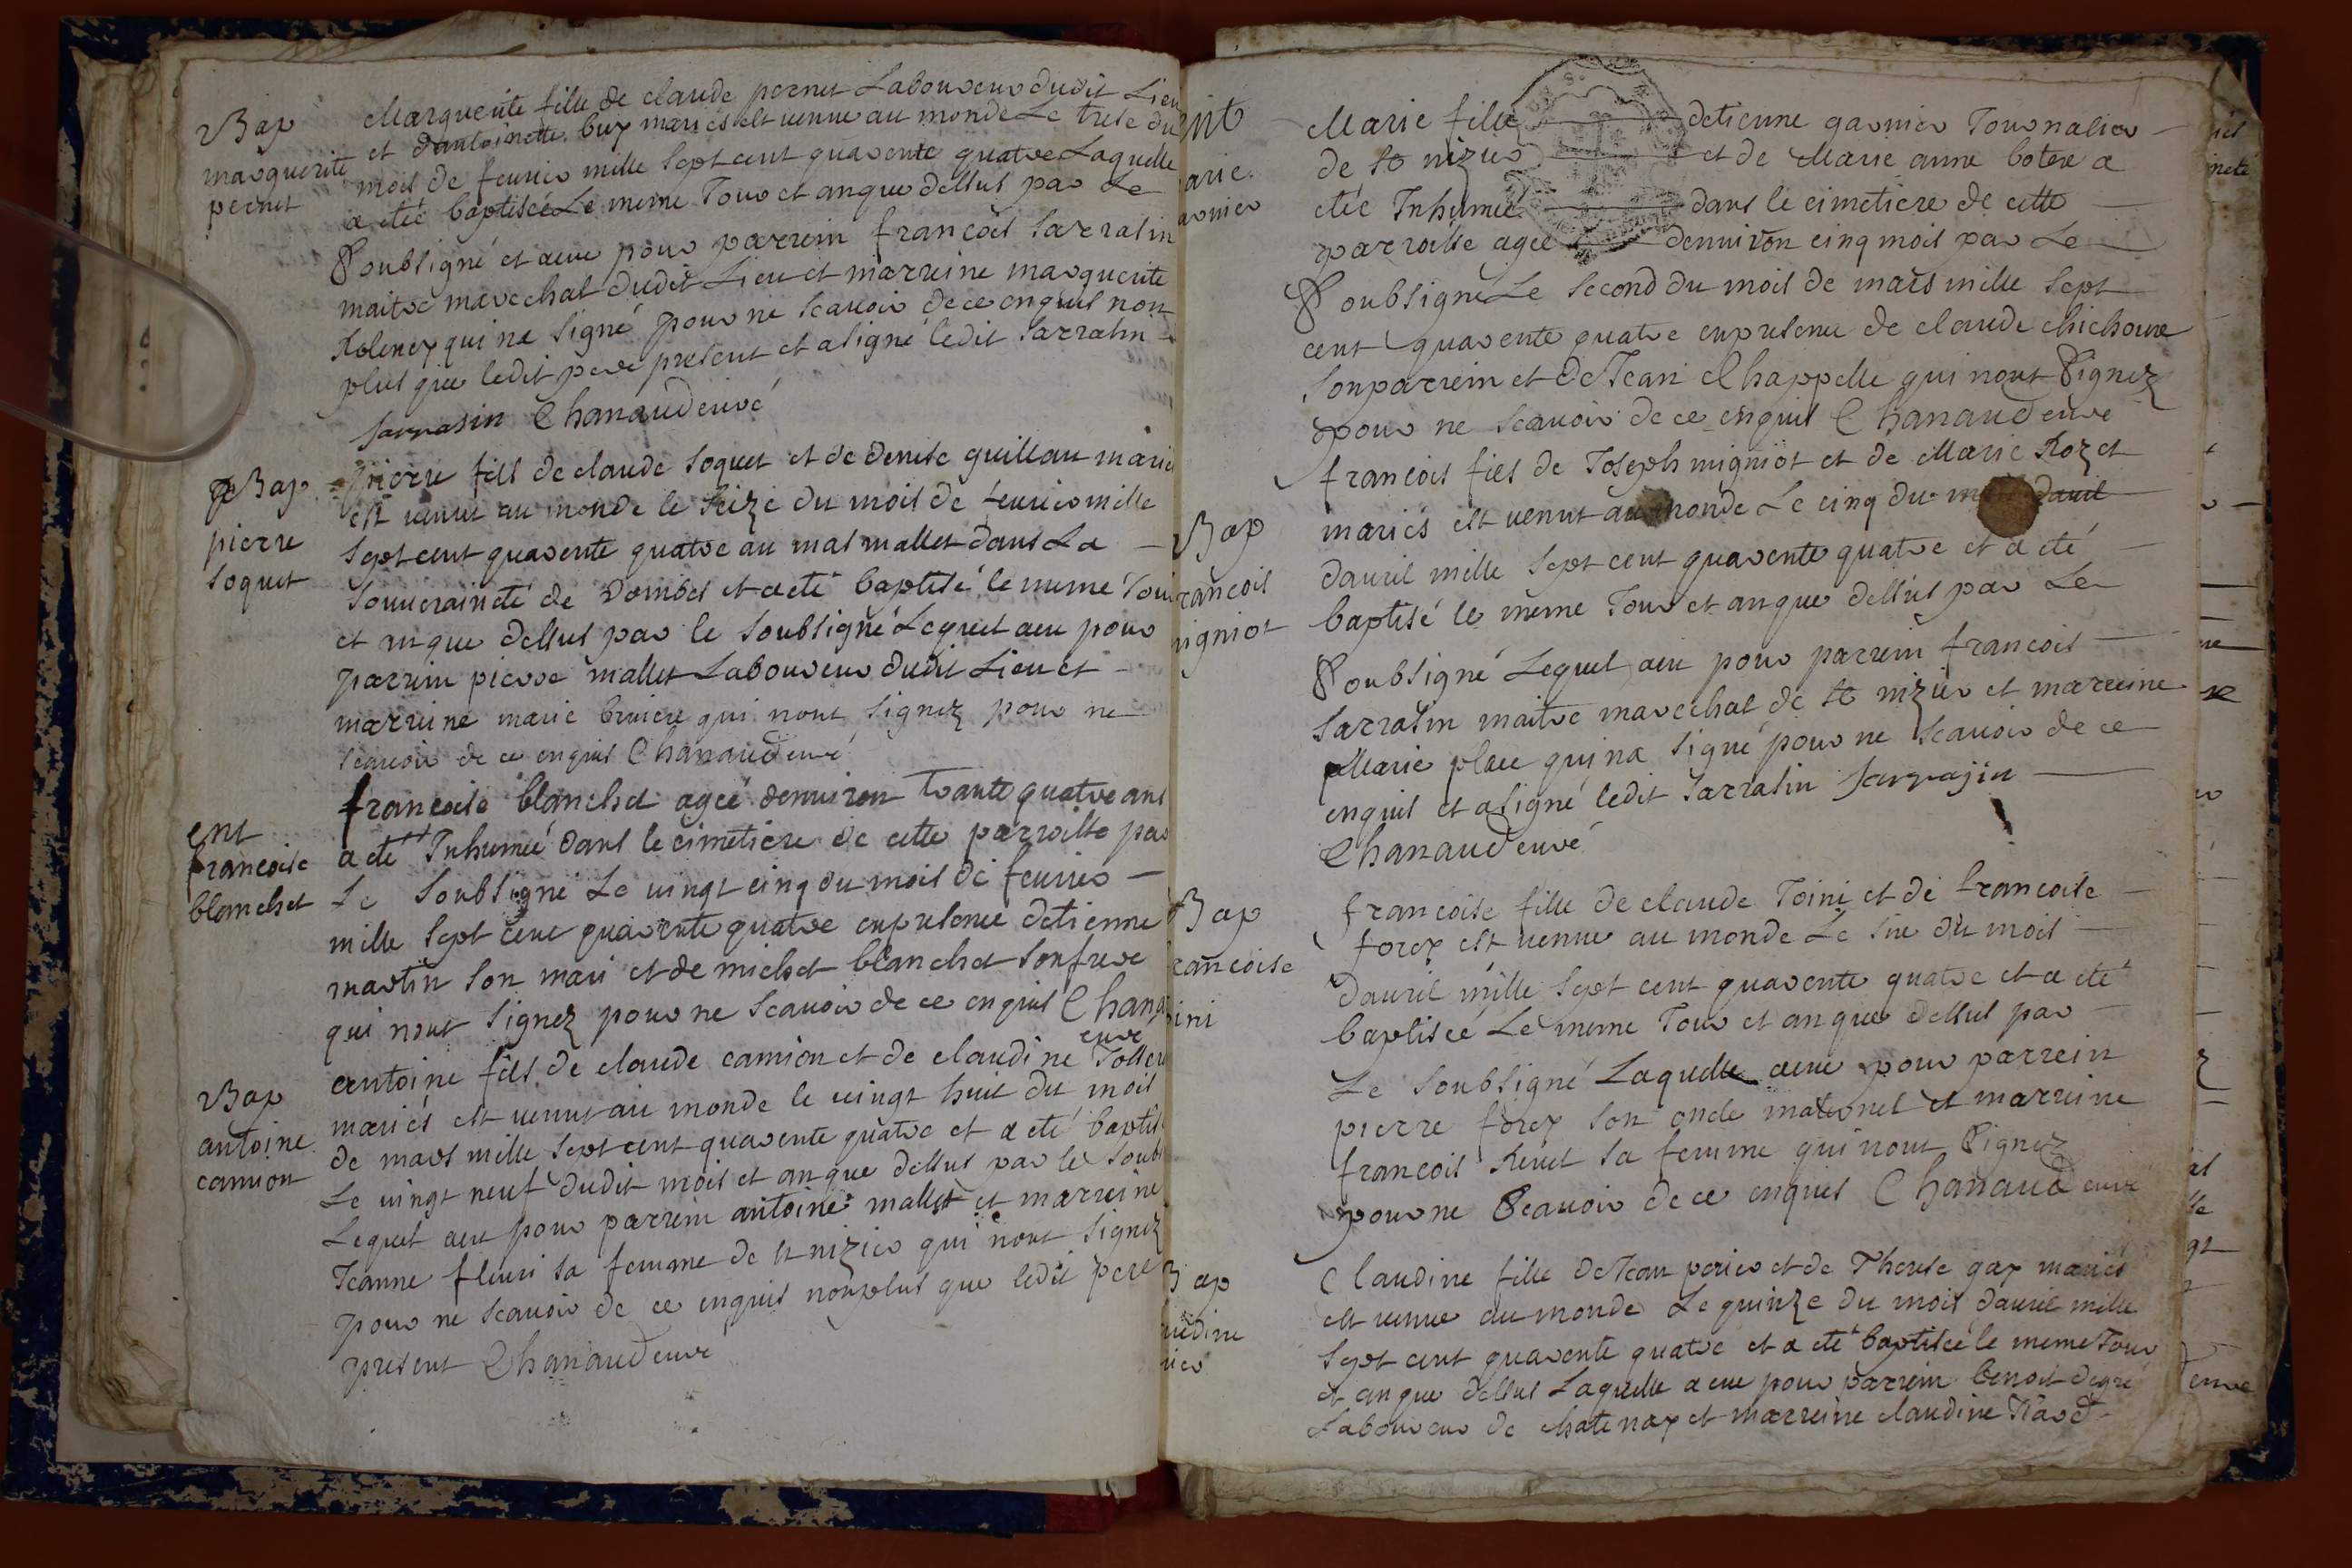 Bap
marguerite
pernet
Marguerite fille de claude pernet Laboureur dudit Lieu
et dantoinette buy mariés est venue au monde Le trese du
mois de feurier mille sept cent quarente quatre Laquelle
a eté baptiseé Le meme Jour et anque dessus par Le
Soubsigné et a eue pour parrein françois Sarrasin
maitre marechal dudit Lieu et marreine marguerite
qui na signé pour ne scauoir de ce enquis non
plus que ledit pere present et a signé ledit Sarrasin
Sarrasin Chanaud curé
Bap
pierre
soquet
pierre fils de claude soquet et de denise guillau mariés
est venut au monde le seize du mois de feurier mille
sept cent quarente quatre au mas mallet dans La
Souueraineté de Dombes et a eté baptisé le meme Jour
et anque dessus par le soubsigné Lequel a eu pour
parrein pierre mallet Laboureur dudit Lieu et
marreine marie briuiere qui nont signez pour ne
scauoir de ce enquis Chanaud curé
ent
francoise
blanchet
francoise blanchet ageé denuiron trante quatre ans
a eté Inhumeé dans le cimetiere de cette parroisse par
Le soubsigné Le uingt cinq du mois de feurier
mille sept cent quarente quatre en presence detienne
martin son mari et de michet blanchet son frere
qui nont signez pour ne scauoir de ce enquis Chana
curé
Bap
antoine
camion
antoine fils de claude camion et de claudine
mariés est venut au monde le uingt huit du mois
de mars mille sept cent quarente quatre et a eté baptisé
Le uingt neuf dudit mois et an que dessus par le soubs
Lequel a eu pour parrein antoine mallet et marreine
Jeanne fleuri sa femme de st nizier qui nont signez
pour ne scauoir de ce enquis non plus que ledit pere
present Chanaud curé
nt
arie
arnier
Marie fille detienne garnier Journalier
de st nizier et de Marie anne botex a
etée Inhumeé dans le cimetiere de cette
parroisse ageé denuiron cinq mois par Le
Soubsigné Le second du mois de mars mille sept
cent quarente quatre en presence de claude
son parrein et de Jean Chappelle qui nont signez
pour ne scauoir de ce enquis Chanaud curé
Bap
rancois
igniot
francois fils de Joseph migniot et de Marie Rozet
mariés est venut au monde Le cinq du mois dauril
dauril mille sept cent quarente quatre et a eté
baptisé le meme Jour et anque dessus par Le
Soubsigné Lequel a eu pour parrein francois
Sarrasin maitre marechal de st nizier et marreine
Marie place qui na signé pour ne scauoir de ce
enquis et a signé ledit Sarrasin Sarrasin
Chanaud curé
Bap
rancoise
ini
francoise fille de claude Joini et de francoise
forex est venue au monde Le sixe du mois
dauril mille sept cent quarente quatre et a eté
baptiseé Le meme Jour et an que dessus par
Le soubsigné Laquelle a eue pour parrein
pierre forex son oncle maternel et marreine
francois Reuet sa femme qui nont signez
pour ne scauoir de ce enquis Chanaud curé
Bap
udine
rier
Claudine fille de Jean perier et de Therese gay mariés
est venue au monde Le quinze du mois dauril mille
sept cent quarente quatre et a eté baptiseé le meme Jour
et an que dessus Laquelle a eue pour parrein benoit degre
Laboureur de chatenay et marreine claudine